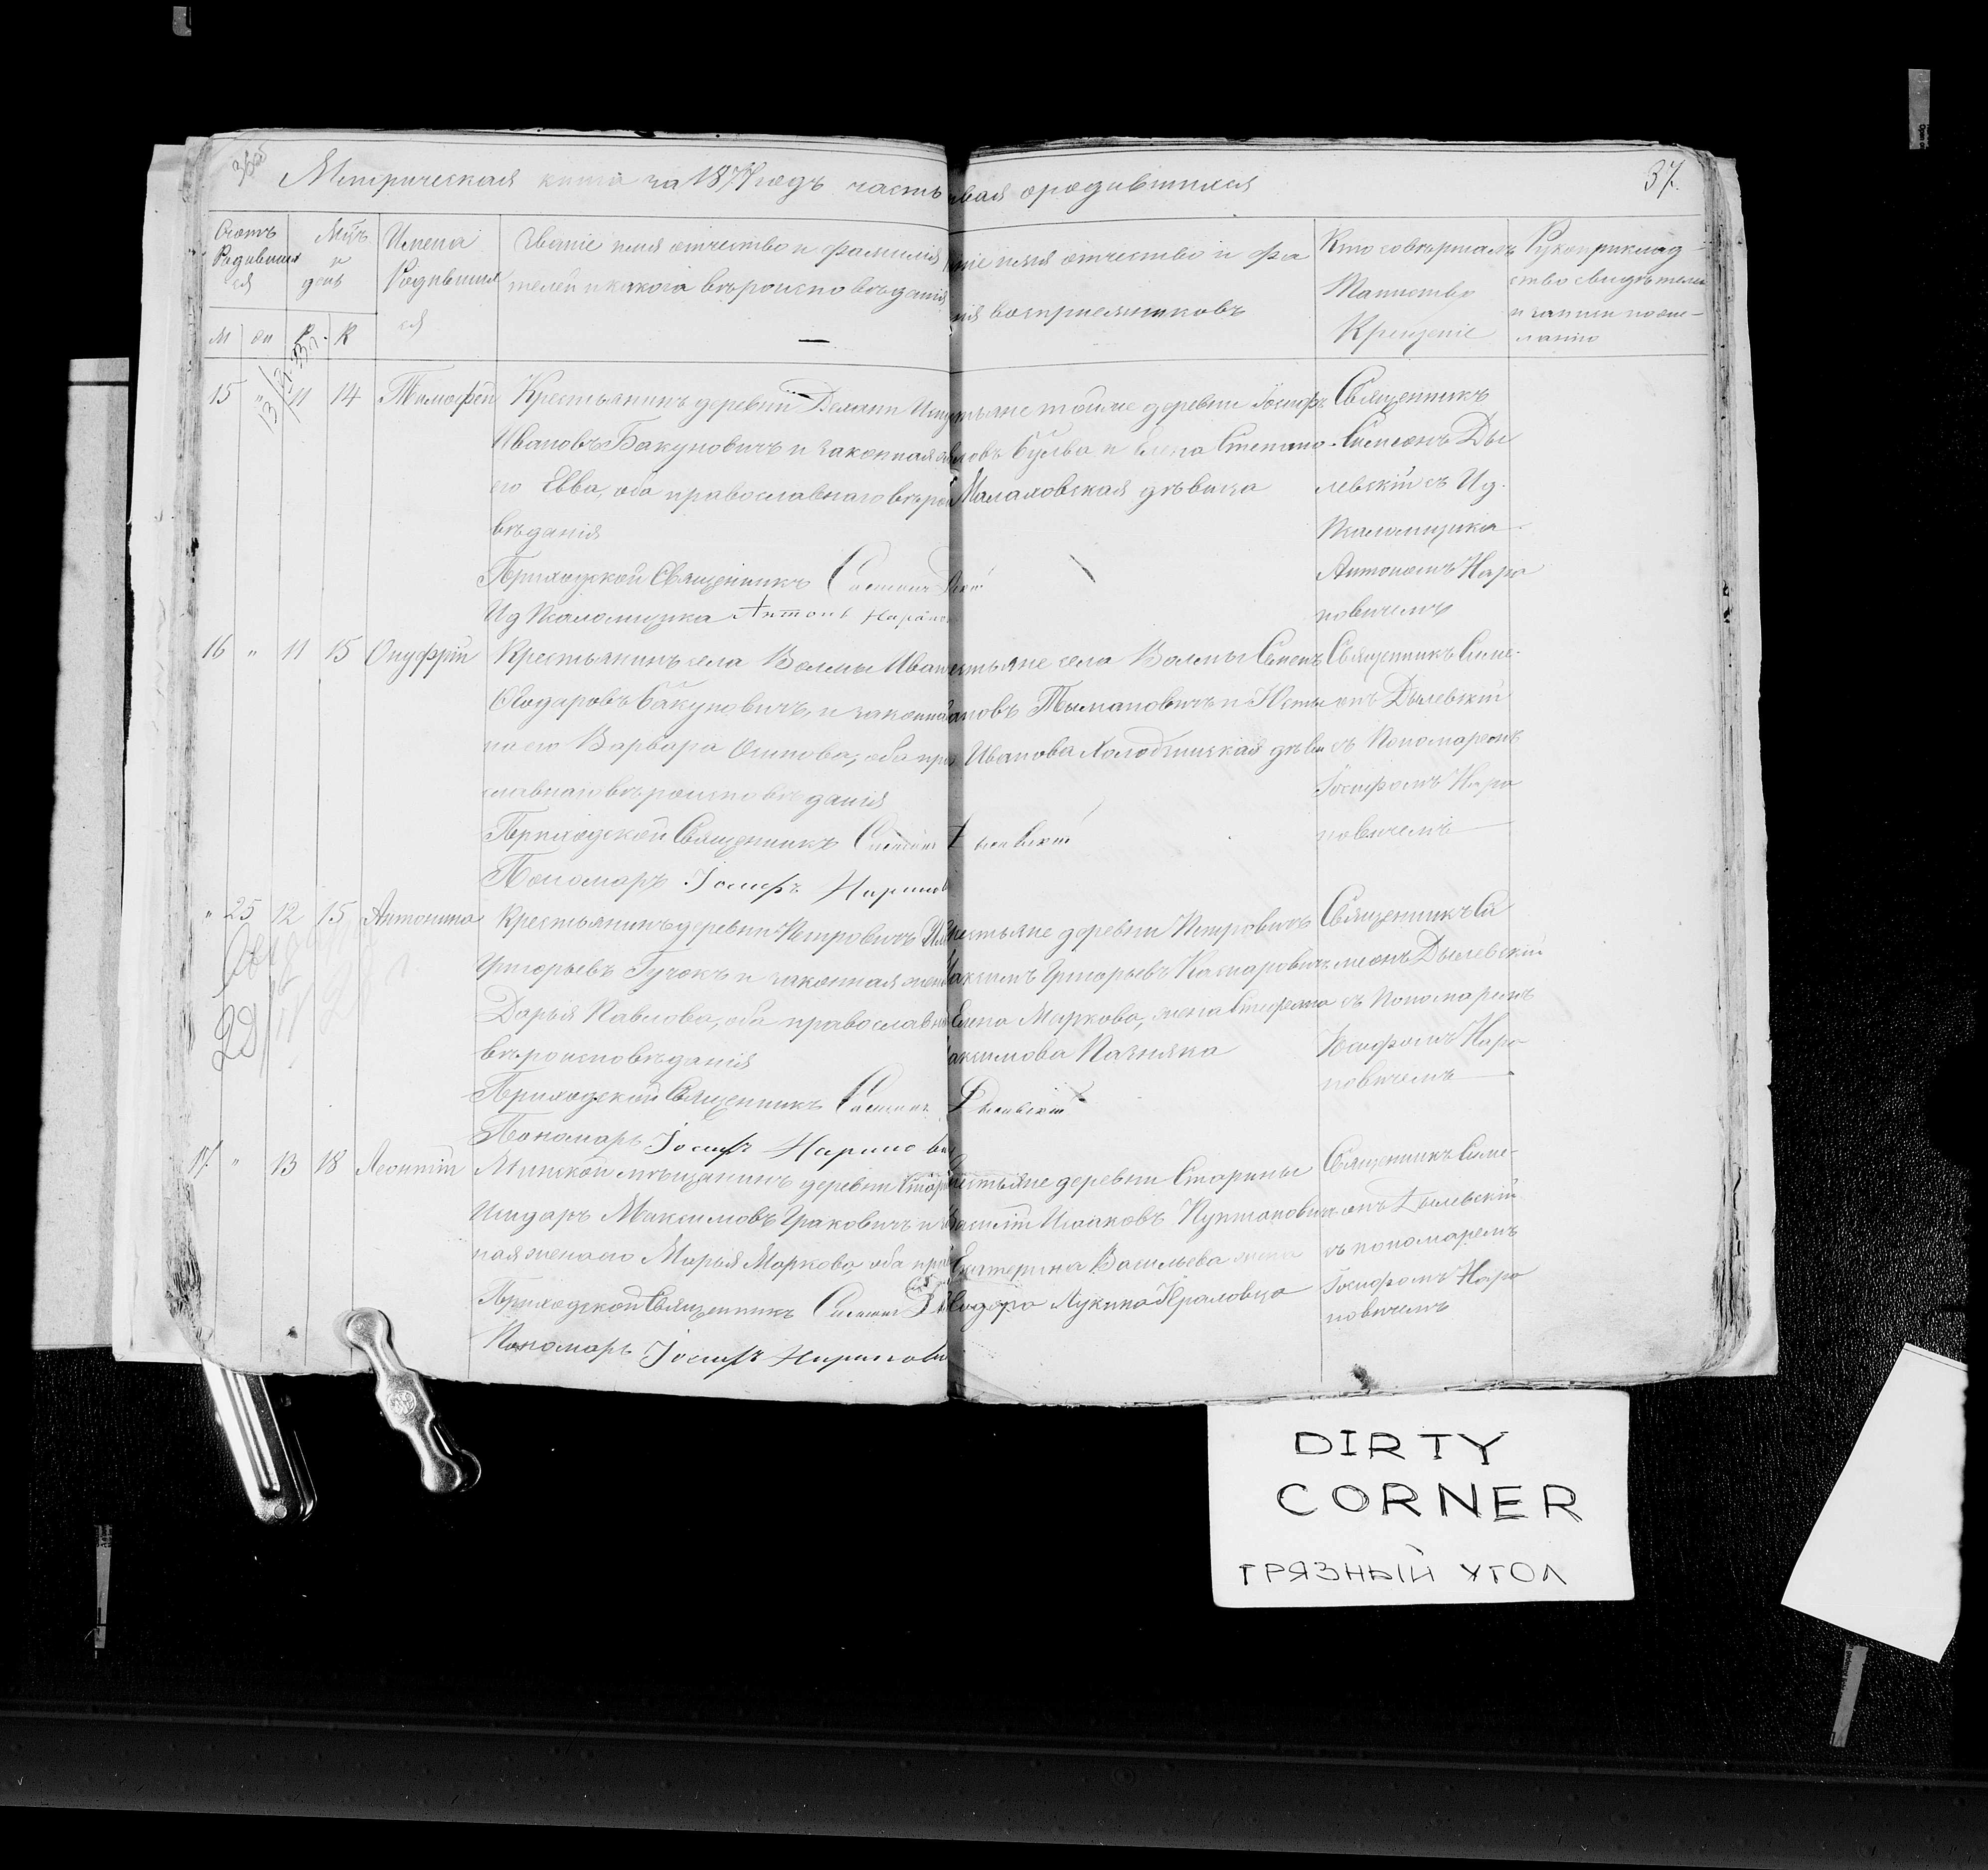 36об
37.
Метрическая книга за 1877 годъ часть
вая о родившихся
Счетъ Родившихся
Мѣсѣцъ и день
Имена Родившихся
Званіе имя отчество и фамилія
телей и какого вѣроисповѣданія
ніе имя отчество и фа
лія воспріемниковъ
Кто совершалъ Таинство Крещеніе
Рукоприкладство свидѣтелей
о записи по желанію
М Ж Р К
15 " 11 14 Тимофей
Крестьянинъ деревни
Ивановъ Бакуновичъ и законная
его Евва, оба православнаго вѣроис
вѣданія
Приходской Священникъ Симеонъ
И д Псаломщика Антонъ
тьяне той же деревни Іосифъ
Бульва и Елена Степано
Малаховская дѣвица
Священникъ
Симеонъ Ды
левскій съ И д.
Псаломщика
Антономъ Наро
новичемъ
16 " 11 15 Онуфрій
Крестьянинъ села Волмы Иванъ
Ѳеодоровъ Бакуновичъ, и законная
на его Варвара Осипова, оба пра
славнаго вѣроисповѣданія
Приходской Священникъ Симеонъ Дылевскій
Пономарь Іосифъ
стьяне села Волмы Семенъ
ановъ Тымановичъ и
Иванова Холодницкая дѣви
Священникъ Симе-
онъ Дылевскій
съ Пономаремъ
Іосифомъ Наро
новичемъ
" 25 12 15 Антонина
Крестьянинъ деревни Петровичъ
Григорьевъ Гучокъ и законная жена
Дарья Павлова, оба православн
вѣроисповѣданія
Приходской Священникъ Симеонъ Дылевскій
Пономарь Іосифъ
рестьяне деревни Петровичъ
Максимъ Григорьевъ Каспаровичъ
Елена Маркова, жена Стефана
Максимова
Священникъ Си
меонъ Дылевскій
съ Пономаремъ
Іосифомъ Наро
новичемъ
17. " 13 18 Леонтій
Минской мѣщанинъ деревни
Исидоръ Максимовъ Граковичъ и
ная жена его Марья Маркова, оба пра
Приходской Священникъ Симеонъ
Пономарь Іосифъ
рестьяне деревни Старины
Василій Исааковъ
Екатерина Васильева жена
Ѳеодора Лукина
Священникъ Симе-
онъ Дылевскій
съ пономаремъ
Іосифомъ Наро
новичемъ
DIRTY
CORNER
ГРЯЗНЫЙ УГОЛ